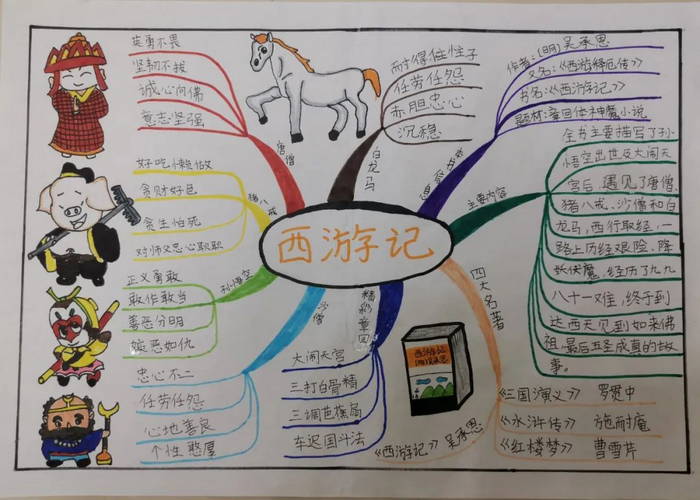 西游记
唐僧
英勇不畏
坚韧不拔
诚心向佛
意志坚强
猪八戒
好吃懒做
贪财好色
贪生怕死
对师父忠心耿耿
孙悟空
正义勇敢
敢作敢当
善恶分明
嫉恶如仇
沙僧
忠心不二
任劳任怨
心地善良
个性憨厚
白龙马
耐得住性子
任劳任怨
赤胆忠心
沉稳
作者:(明)吴承恩
又名:《西游释厄传》
书名:《西游记》
题材:章回体神魔小说
主要内容
全书主要描写了孙
悟空出世及大闹天
宫后,遇见了唐僧、
猪八戒、沙僧和白
龙马,西行取经,一
路上历经艰险、降
妖伏魔,经历了九九
八十一难,终于到
达西天见到如来佛
祖,最后五圣成真的故
事。
精彩章回
大闹天宫
三打白骨精
三调芭蕉扇
车迟国斗法
四大名著
西游记
《三国演义》 罗贯中
《水浒传》 施耐庵
《红楼梦》 曹雪芹
《西游记》吴承恩